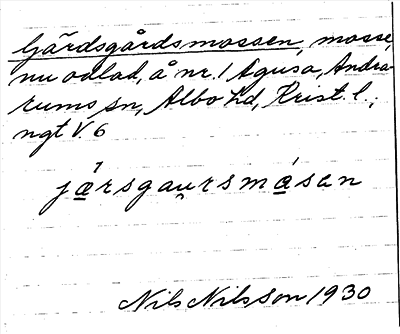 Gärdsgårdsmossen, mosse,
nu odlad, å nr. 1 Agusa, Andra-
rums sn, Albo hd, Krist. l.;
ngt V. 6
jä́rsgau̯rsmásen
Nils Nilsson 1930